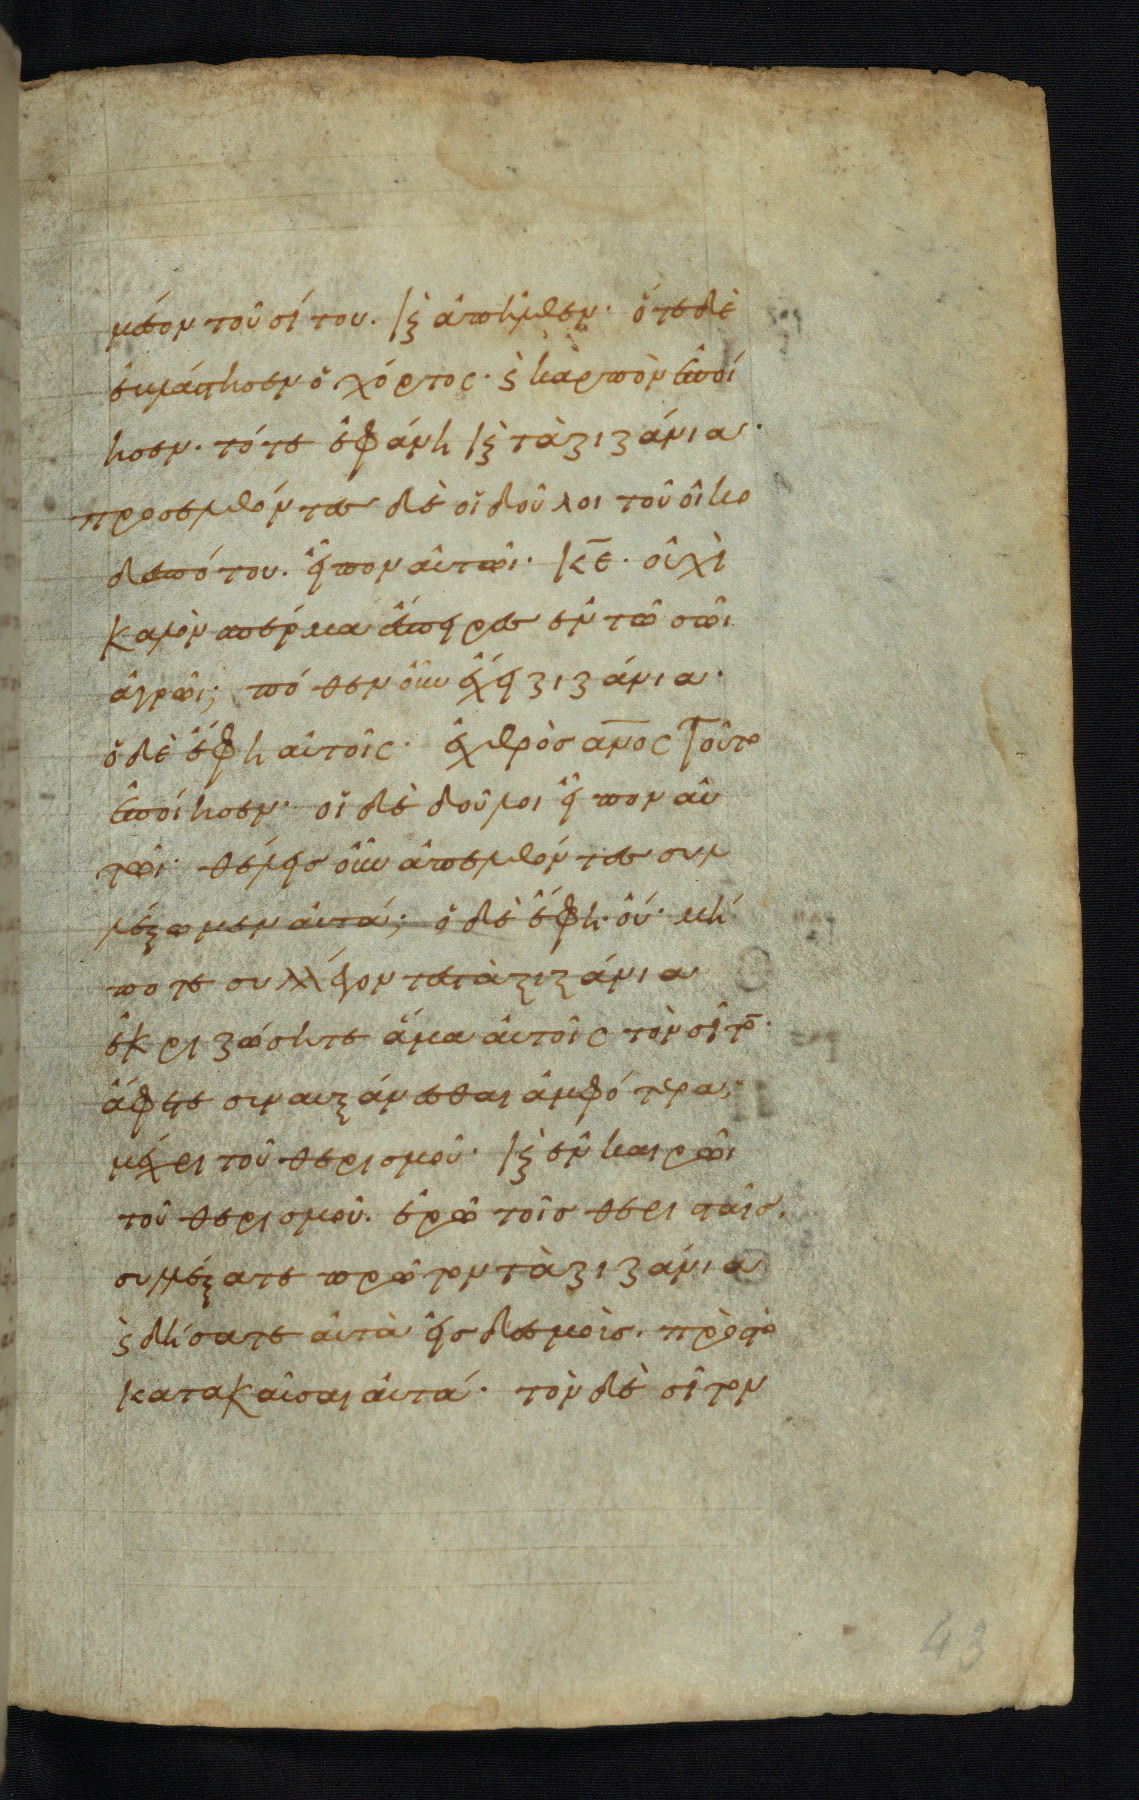 μέσον τοῦ σίτου. κ̀ ἀπῆλθεν· ὅτε δὲ
ἐβλάστησεν ὁ χόρτος· κ̀ καρπὸν ἐποί
ησεν· τότε ἐφάνη κ̀ τὰ ζιζάνια·
προσελθόντες δὲ οἱ δοῦλοι τοῦ οἰκο
δεσπότου. εἶπον αὐτῶι· κ̅ε̅· οὐχὶ
καλὸν σπέρμα ἔσπειρας ἐν τῶ σῶι
ἀγρῶι; πόθεν οὖν ἔχει ζιζάνια·
ὁ δὲ ἔφη αὐτοῖς· ἐχθρὸσ α̅ν̅ο̅ς̅ τοῦτο
ἐποίησεν· οἱ δὲ δοῦλοι εἶπον αὐ
τῶι· θέλεισ οὖν ἀπελθόντες συλ
λέξωμεν αὐτά; ὁ δὲ ἔφη· οὔ· μή
ποτε συλλέγοντες τὰ ζιζάνια
ἐκριζώσητε ἅμα αὐτοῖς τὸν σῖτο̅·
ἄφετε συναυξάνεσθαι ἀμφότερα·
μέχρι τοῦ θερισμοῦ· κ̀ ἐν καιρῶι
τοῦ θερισμοῦ. ἐρῶ τοῖσ θερισταῖσ.
συλλέξατε πρῶτον τὰ ζιζάνια
κ̀ δήσατε αὐτὰ εἰσ δεσμάσ. πρὸς τὸ
κατακαῖσαι αὐτά· τὸν δὲ σῖτον
43